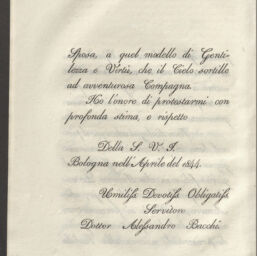 Sposa, a quel modello di Genti-
lezza e Virtù, che il Cielo sortille
ad avventurosa Compagna.
Ho l'onore di protestarmi con
profonda stima, e rispetto
Della S. V. I.
Bologna nell'Aprile del 1844.
Umiliss Devotiss Obligatiss
Servitore
Dottor Alessandro Bacchi.